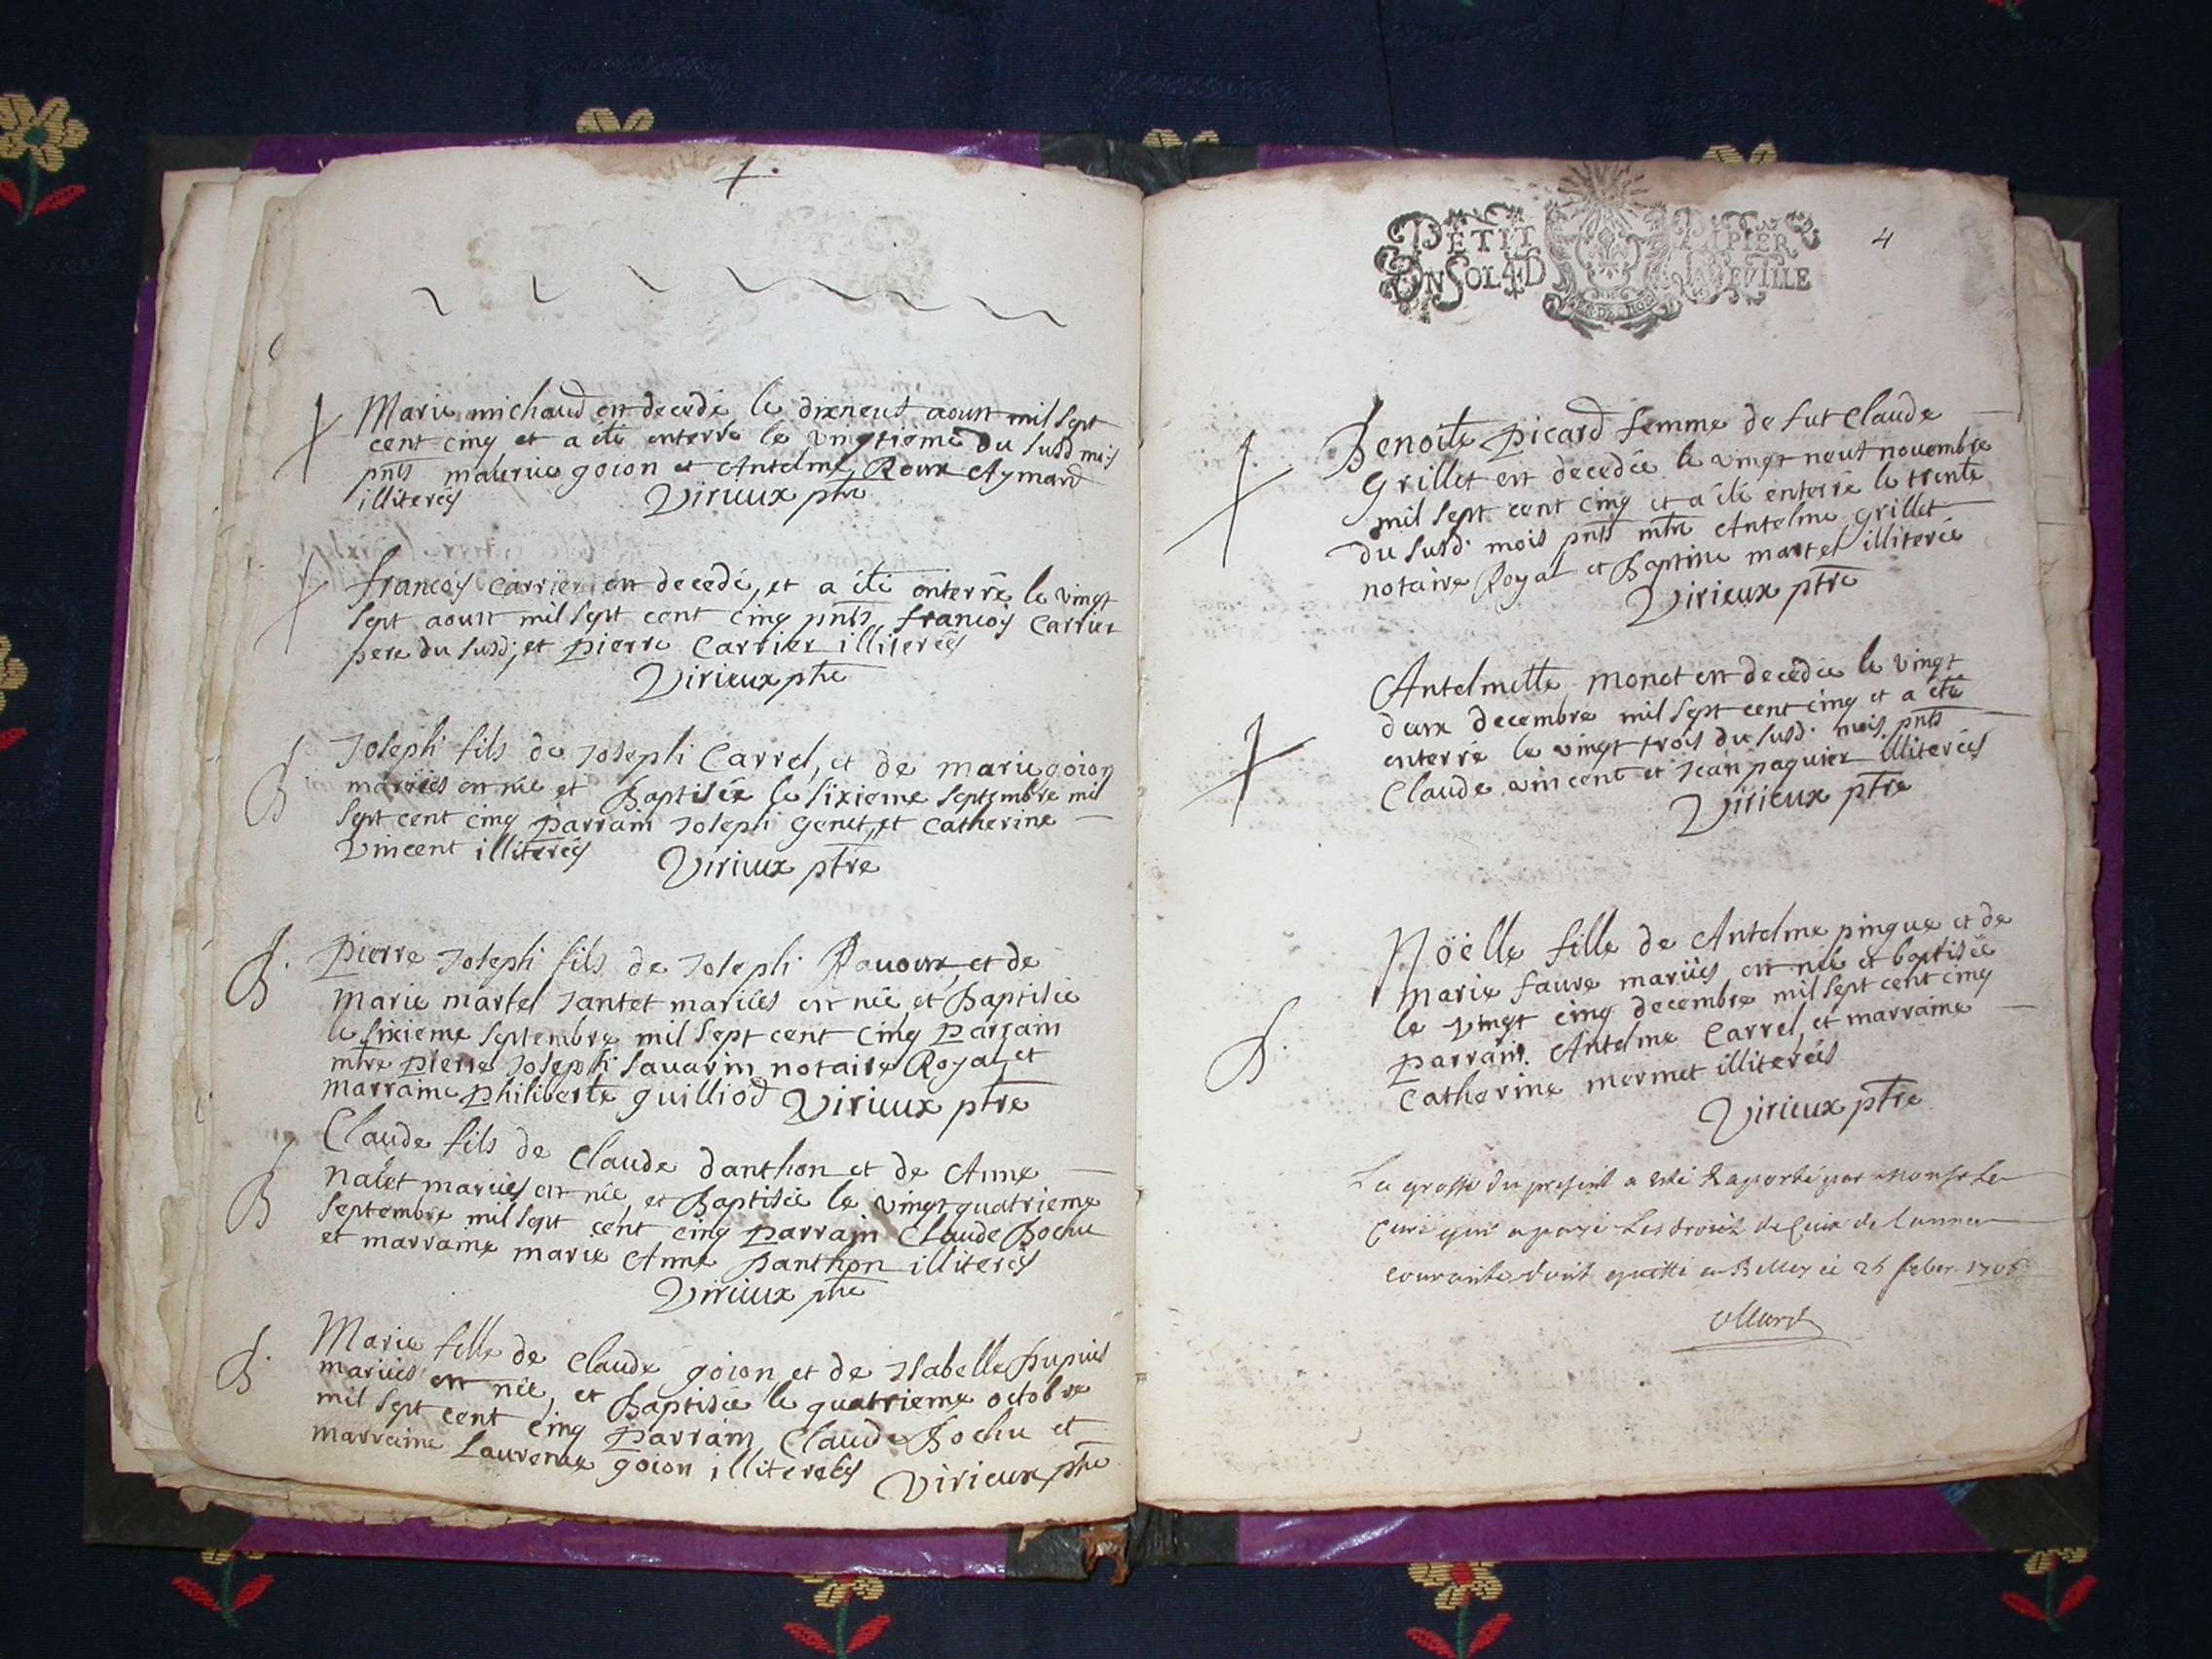 Marie michaud est decedé le dixneuf aoust mil sept
cent cinq et a été enterré le vingtieme du susd mois
pnts maurice goion et Antelme Roux Aymard
illiterés
Virieux ptre
francois Carrier est decedé, et a été enterré le vingt
sept aoust mil sept cent cinq pnts francois Carrier
pere du susd; et pierre Carrier illiterés
Virieux ptre
B Joseph fils de Joseph Carrel, et de marie goion
mariés est née et Baptisée le sixieme septembre mil
sept cent cinq parrain Joseph Genet, et Catherine
Vincent illiterés
Virieux ptre
B. Pierre Joseph fils de Joseph Rauoux et de
marie martel Jantet mariées est née, et Baptisée
le sixieme septembre mil sept cent cinq parrain
mtre pierre Joseph Sauarin notaire Royal et
marraine philiberte guilliod Virieux ptre
B Claude fils de Claude danthon et de Anne
nalet mariés est née, et Baptisée le vingt quatrieme
septembre mil sept cent cinq parrain Claude Bochu
et marraine marie Anne Danthon illiterés
Virieux ptre
B. Marie fille de Claude goion et de Isabelle Dupuis
mariés est née, et Baptisée le quatrieme octobre
mil sept cent cinq parrain Claude Bochu et
marraine Laurence goion illiterés Virieux ptre
PETIT PAPIER
UN SOL 4 D LA FEUILLE
4
Benoite picard femme de fut Claude
Grillet est decedée le vingt neuf nouembre
mil sept cent cinq et a été enterré le trente
du susd. mois pnts mtre Antelme Grillet
notaire Royal et Baptiste martel illiterée
Virieux ptre
Antelmette monet est decedée le vingt
deux decembre mil sept cent cinq et a été
enterré le vingt trois du susd. mois pnts
Claude vincent et Jean paquier illiterées
Virieux ptre
B. Noëlle fille de Antelme pingue et de
marie faure mariées est née et baptisée
le vingt cinq decembre mil sept cent cinq
parrain. Antelme Carrel, et marraine
Catherine mermet illiterés
Virieux ptre
La grosse du present a esté Raporté par monsr Le
Curé qui a payé Les droits de Ceux de Lannée
courante dont quitte a Belley ce 25 feber 1706